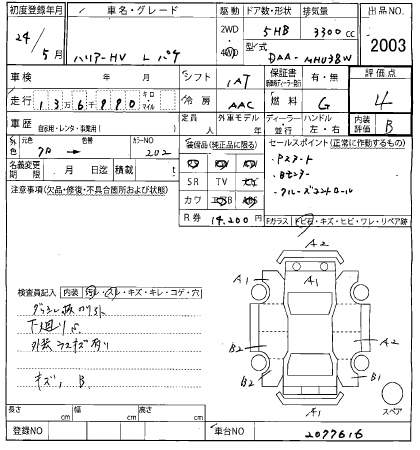 初度登録年月 車名・グレード 駆動 ドア数・形状 排気量 出品NO
24 5月 ハリアーHV Lパケ 2WD 4WD 5HB 3300cc 2003
型式 DAA-MHU38W
車検 年 月 シフト IAT 保証書 有・無 評価点
走行 136990 キロ マイル 冷房 AAC 燃料 G 4
車歴 自家用・レンタ・事業用( ) 定員 人 外車モデル 年 ディーラー・並行 ハンドル 左・右 内装評価 B
外色 元色 色替 カラーNO 202
装備品(純正品に限る) セールスポイント(正常に作動するもの)
名義変更期限 月 日迄 積載 ! SR TV
クルーズコントロール
注意事項(欠品・修復・不具合箇所および状態) カワ
R券 14,200円 Fガラス トビ石・キズ・ヒビ・ワレ・リペア跡
A2
A1 A1 A2
検査員記入 内装 汚レ・スレ・キズ・キレ・コゲ・穴
下廻り
外装 キズ有り
B2 A2
キズ、B
B2 B1
A1 スペア
長さ cm 幅 cm 高さ cm
登録NO 車台NO 2077616